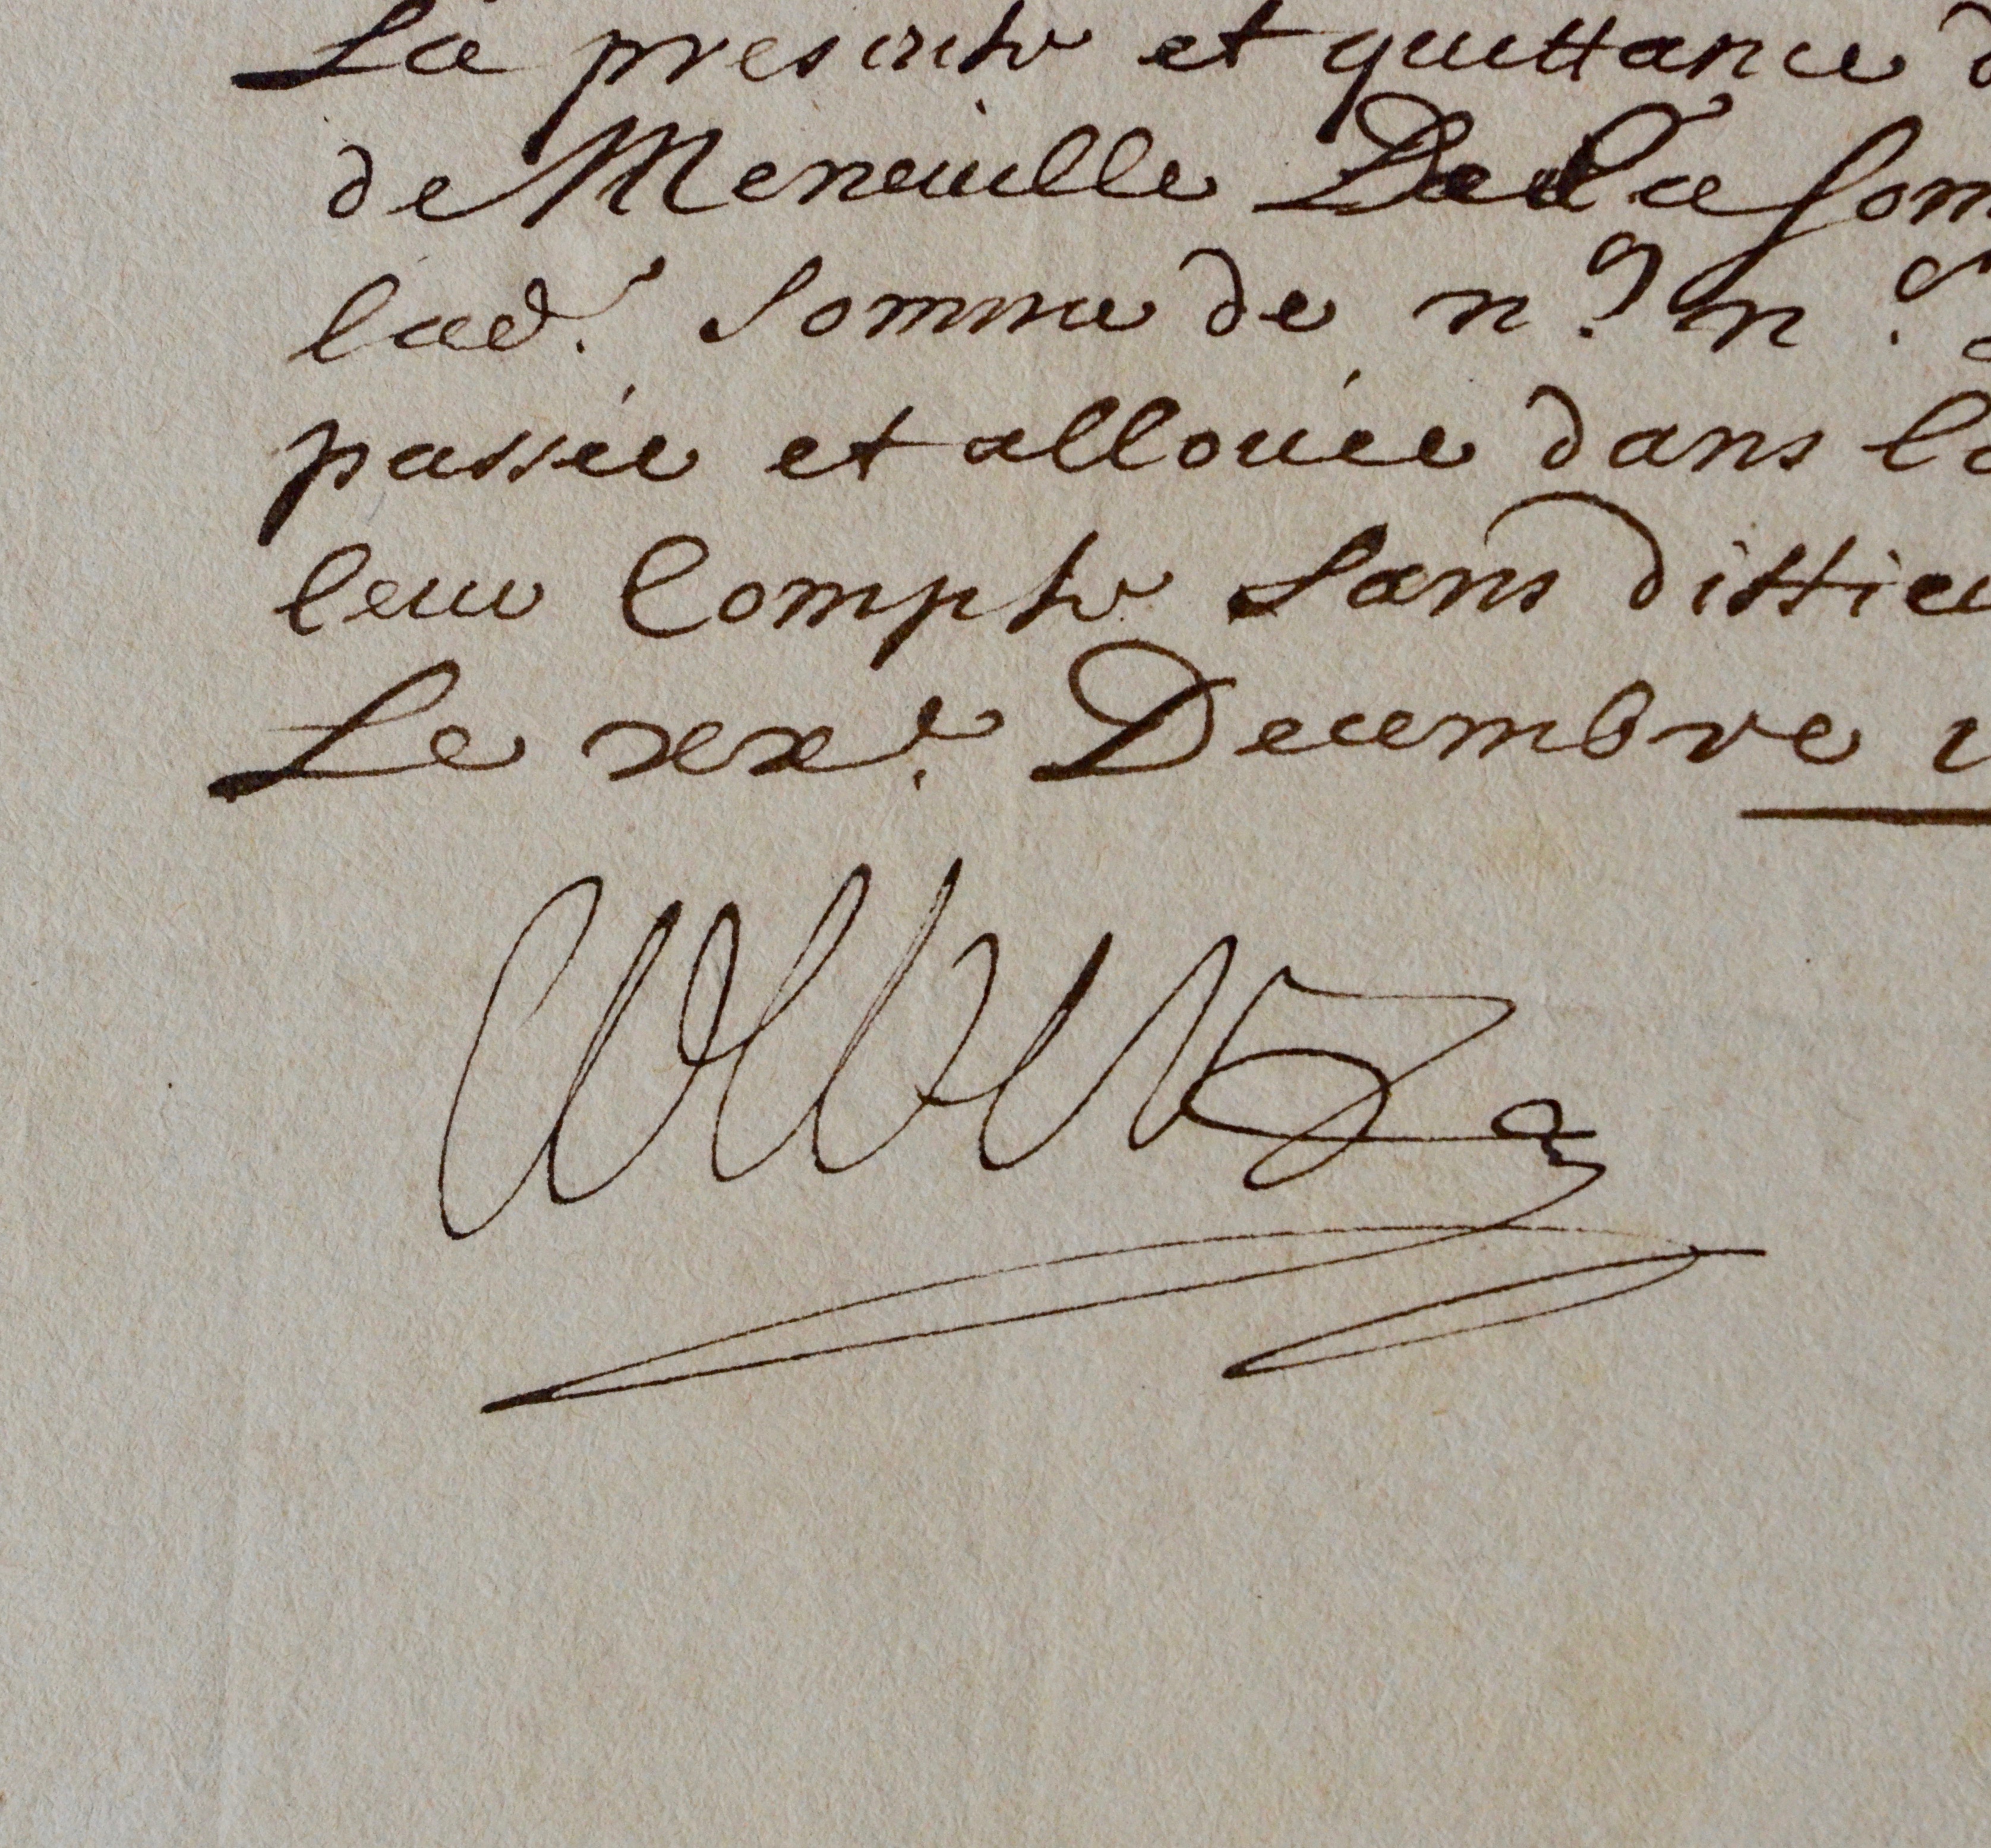 La presente et quittance d
de Meneville De la som
lad.^e somme de n.^c n.^c
passée et allouée dans la
leur Compte sans difficu
Le xx.^e Decembre
Colbert